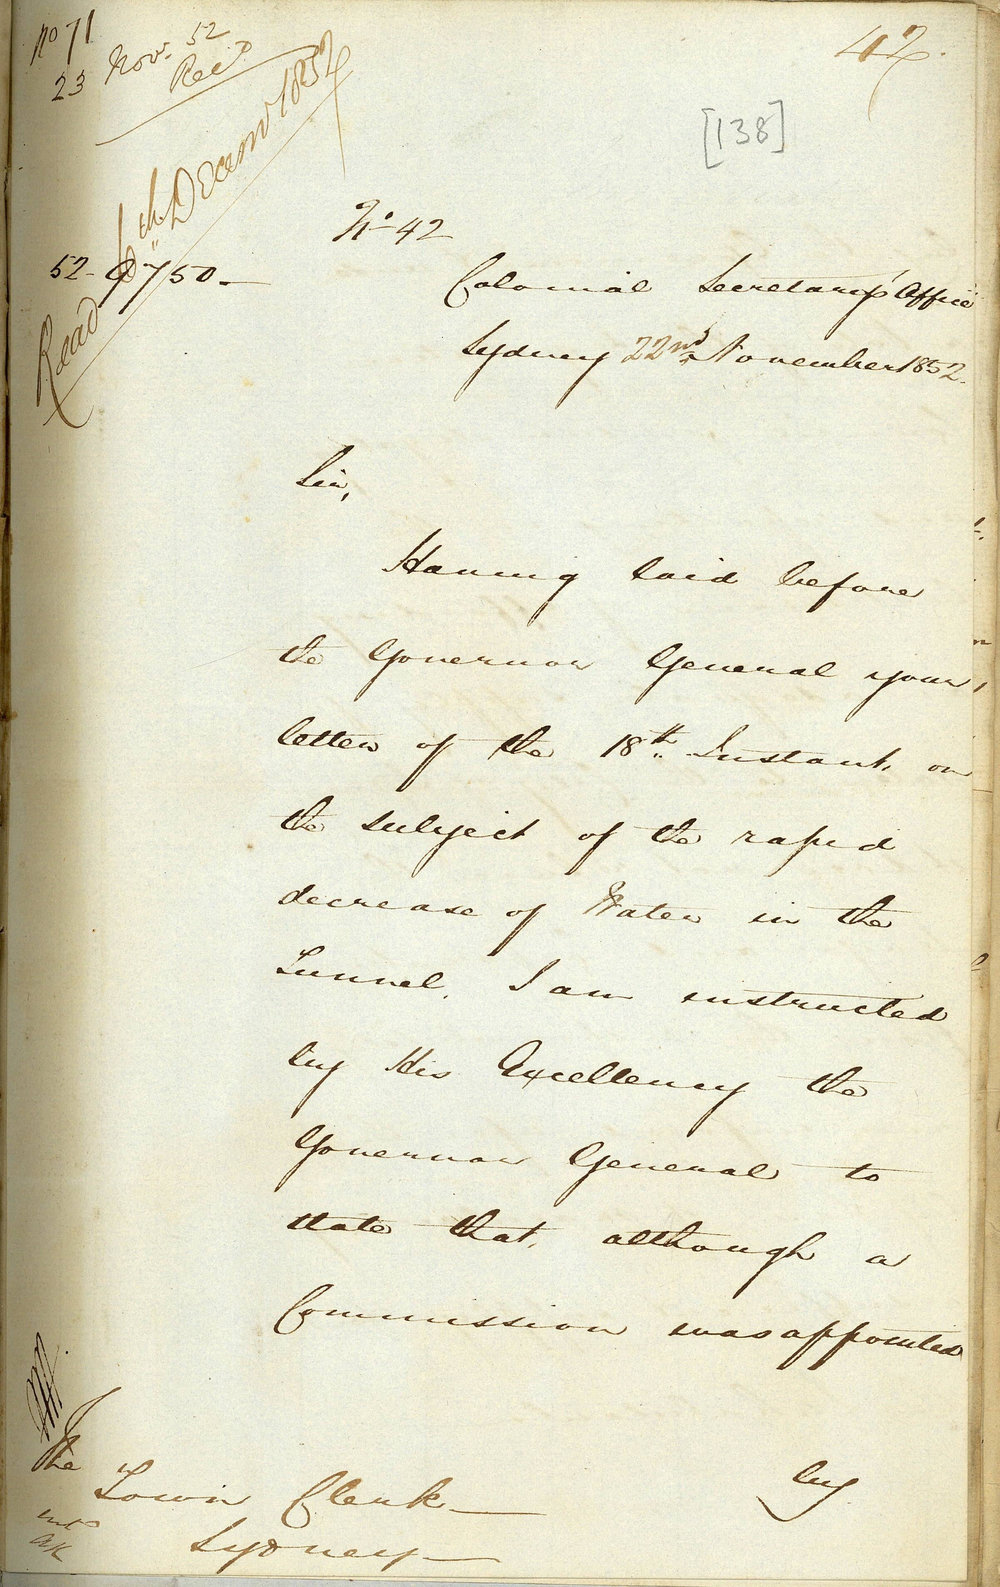 No 71
23 Novr. 52
Recd
42.
[138]
Read 6th Decemr 1852
No. 42
52-9750-
Colonial Secretary's Office
Sydney 22nd November 1852.
Sir,
Having laid before
the Governor General your,
letter of the 18th Instant, on
the subject of the rapid
decrease of Water in the
Tunnel, I am instructed
by His Excellency the
Governor General to
state that, although a
Commission was appointed
by
The
Town Clerk
Sydney